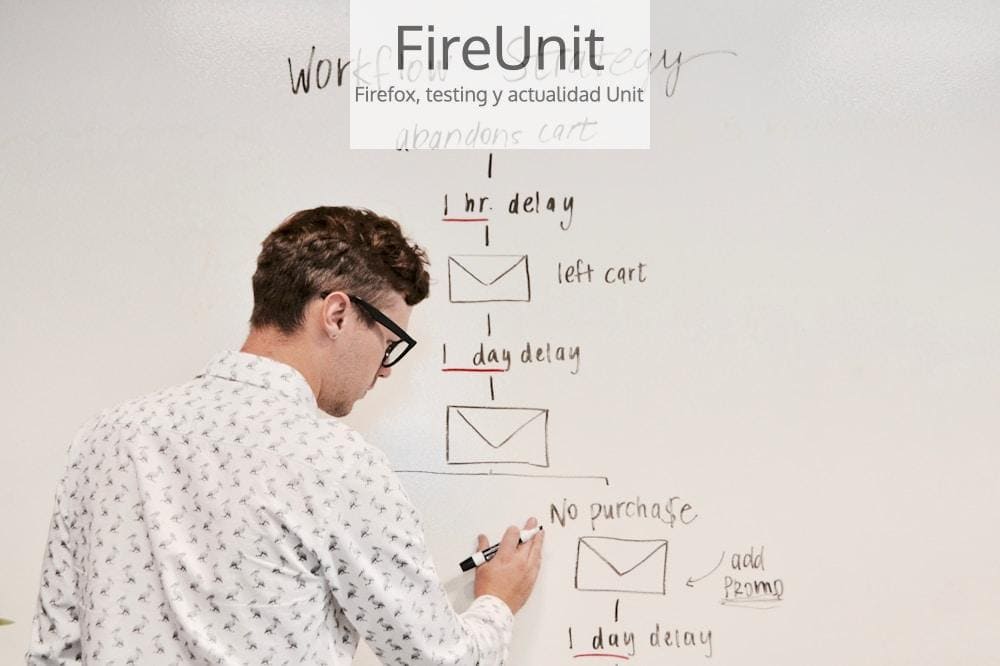 FireUnit
Workflow Strategy
Firefox, testing y actualidad Unit
abandons cart
1 hr. delay
left cart
1 day delay
No purcha$e
add
PROMO
1 day delay